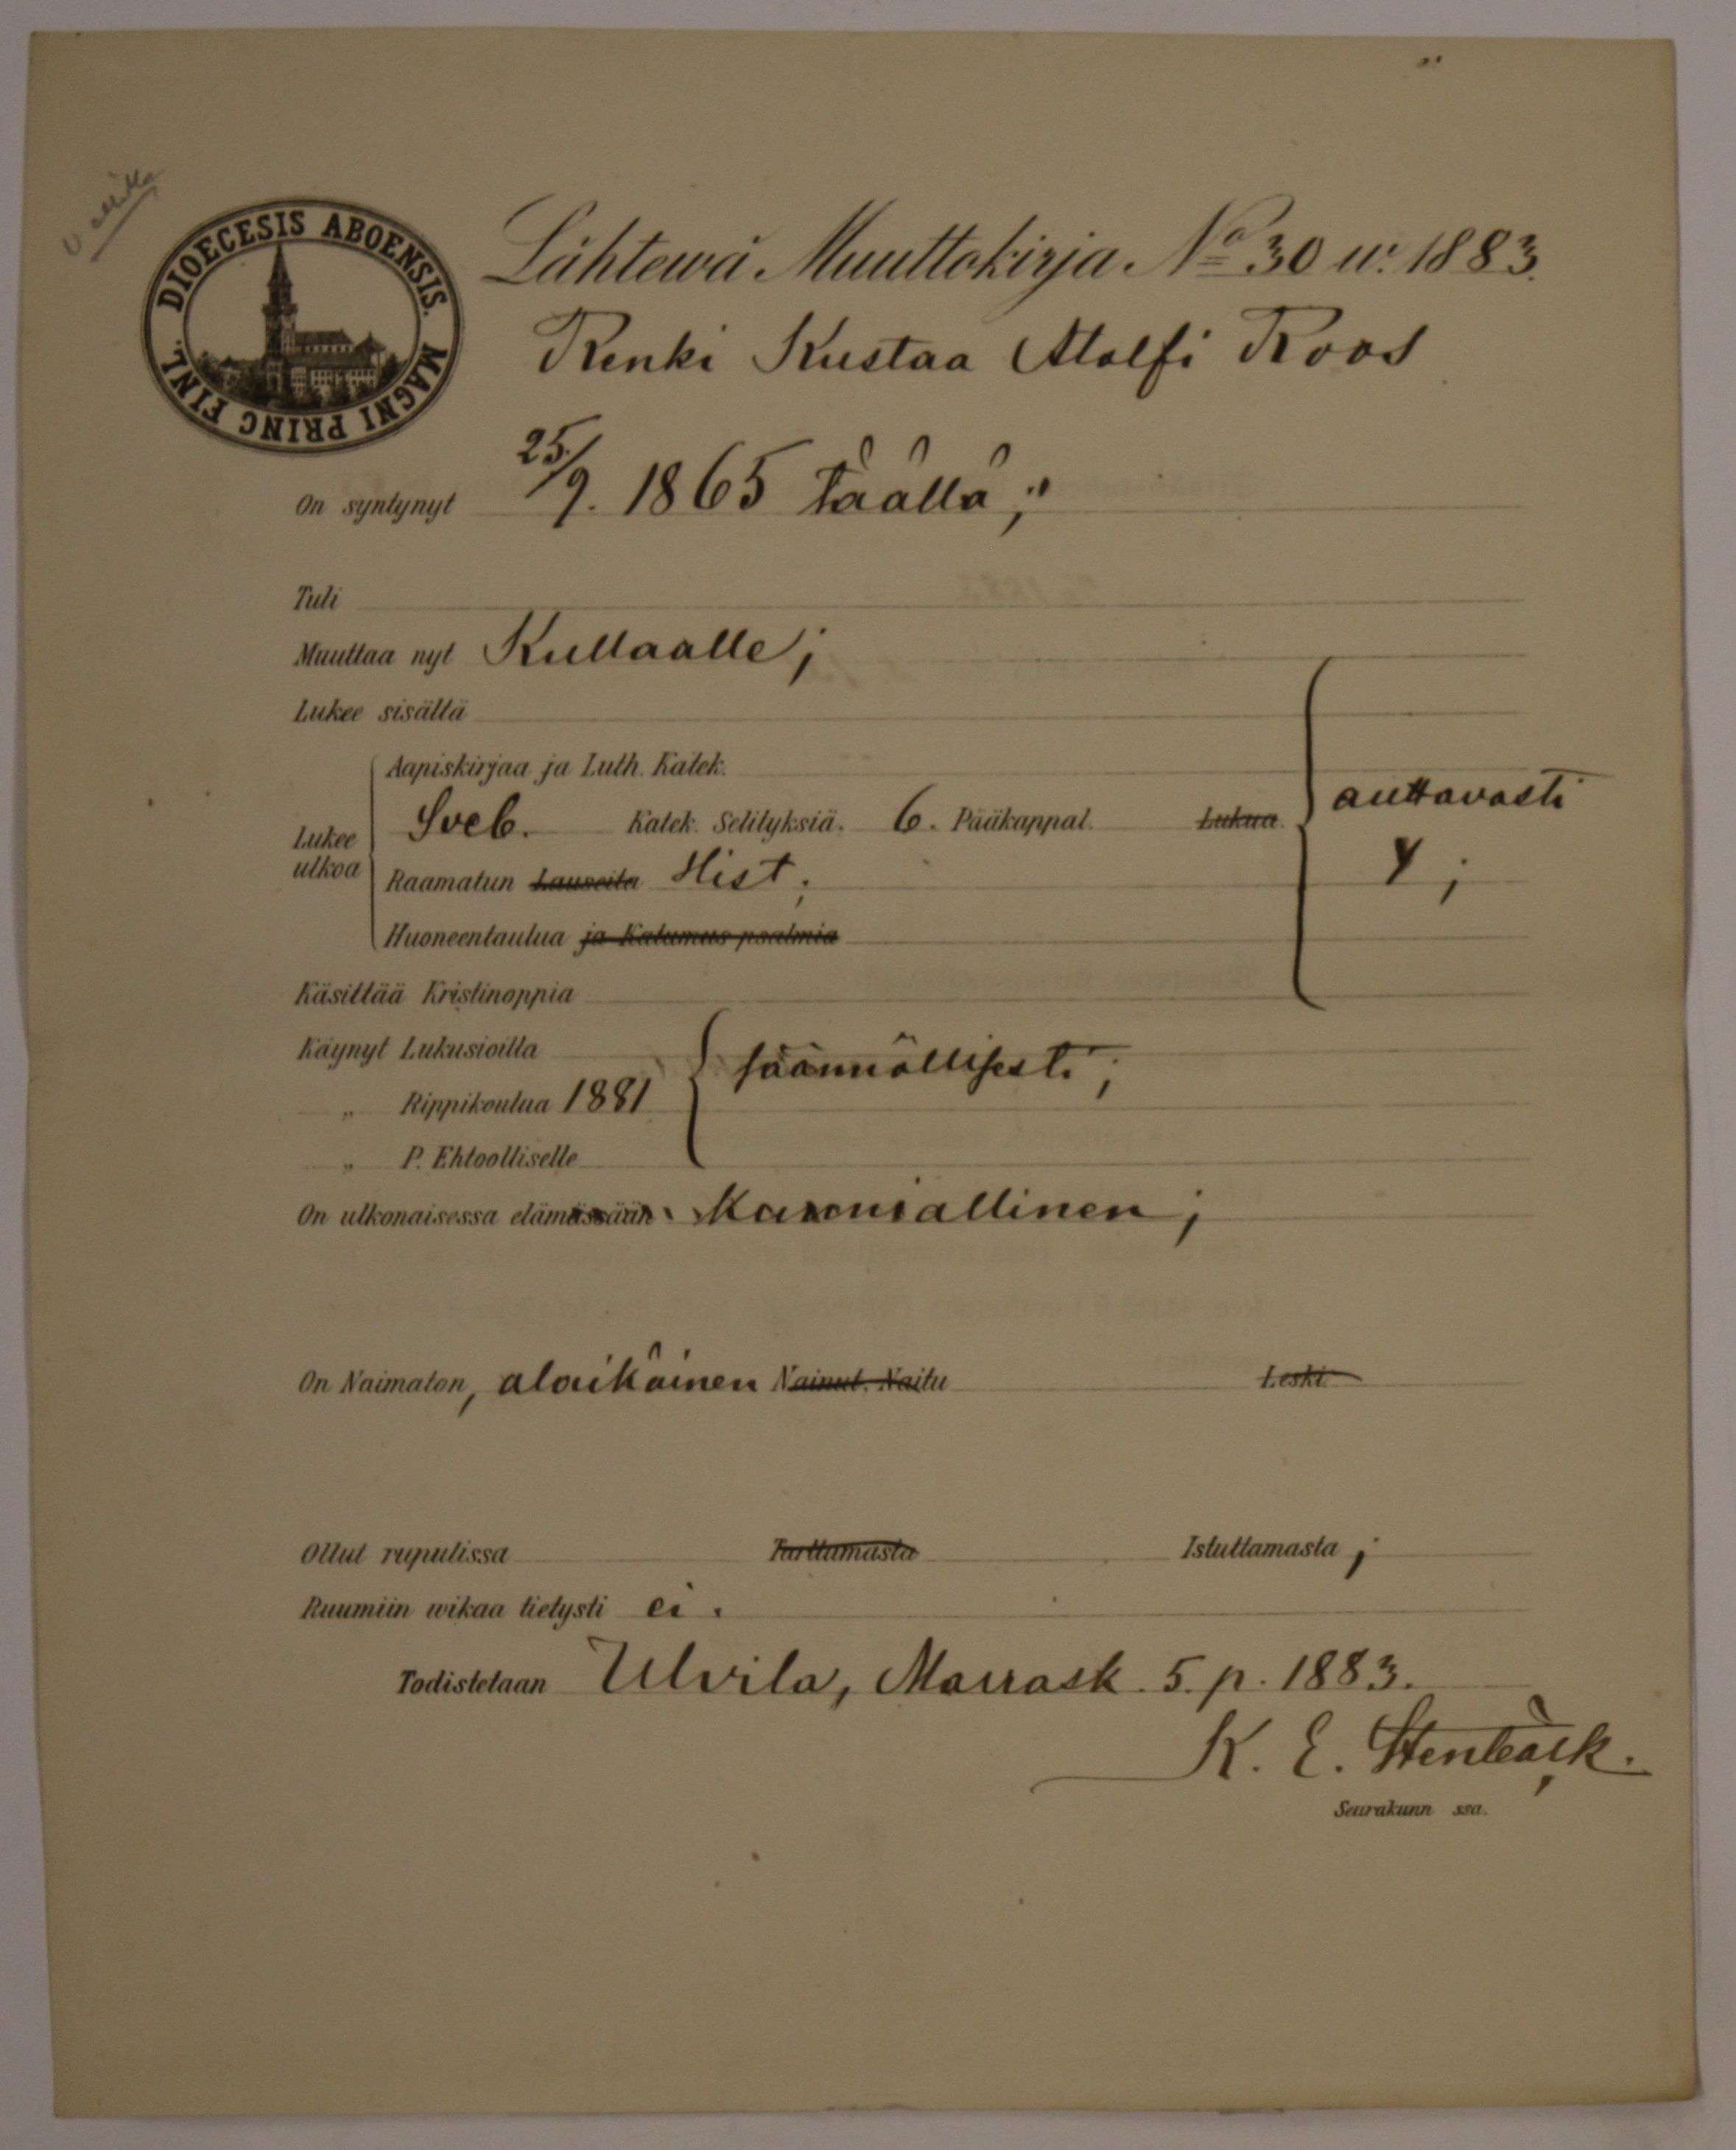 DIOECESIS ABOENSIS. MAGNI PRINC FINL.
Lähtewä Muuttokirja No 30 w. 1883.
Renki Kustaa Atolfi Roos
On syntynyt 25/9. 1865 täällä;
Tuli
Muuttaa nyt Kullaalle;
Lukee sisältä
Aapiskirjaa ja Luth. Katek.
Lukee ulkoa
Sveb. Katek. Selityksiä. 6. Pääkappal. Lukua.
auttavasti
Raamatun Lauseita Hist;
Huoneentaulua ja Katumus psalmia
Käsittää Kristinoppia
Käynyt Lukusioilla
säännöllisesti;
„ Rippikoulua 1881
„ P. Ehtoolliselle
On ulkonaisessa elämässään
On Naimaton, alaikäinen Nainut. Naitu Leski.
Ollut rupulissa Tarttumasta Istuttamasta;
Ruumiin wikaa tietysti ei.
Todistetaan Ulvila, Marrask. 5. p. 1883.
K. E. Stenbäck.
Seurakunn ssa.